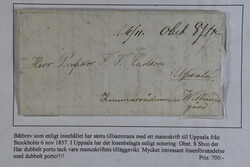 6/11. Obet. 8 Sk Bco
Herr Professor F. F. Carlson
Upsala
Kammarrådinnan
gård
Båtbrev som enligt innehållet har sänts tillsammans med ett manuskrift till Uppsala från
Stockholm 6 nov 1857. I Uppsala har det lösenbelagts enligt notering. Obet. 8 Sbco det
Har dubbelt porto tack vare manuskriftets tilläggsvikt. Mycket intressant lösenförsändelse
med dubbelt porto!!! Pris: 700 -